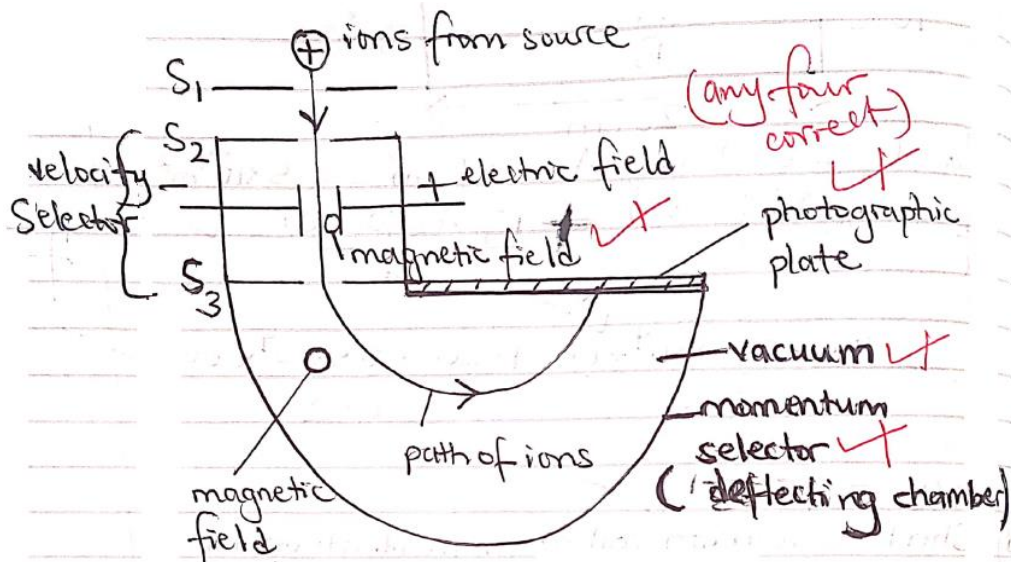 + ions from source
S1
(any four
correct)
S2
velocity
Selector
-
+ electric field
magnetic field
photographic
plate
S3
vacuum
momentum
selector
(deflecting chamber)
path of ions
magnetic
field